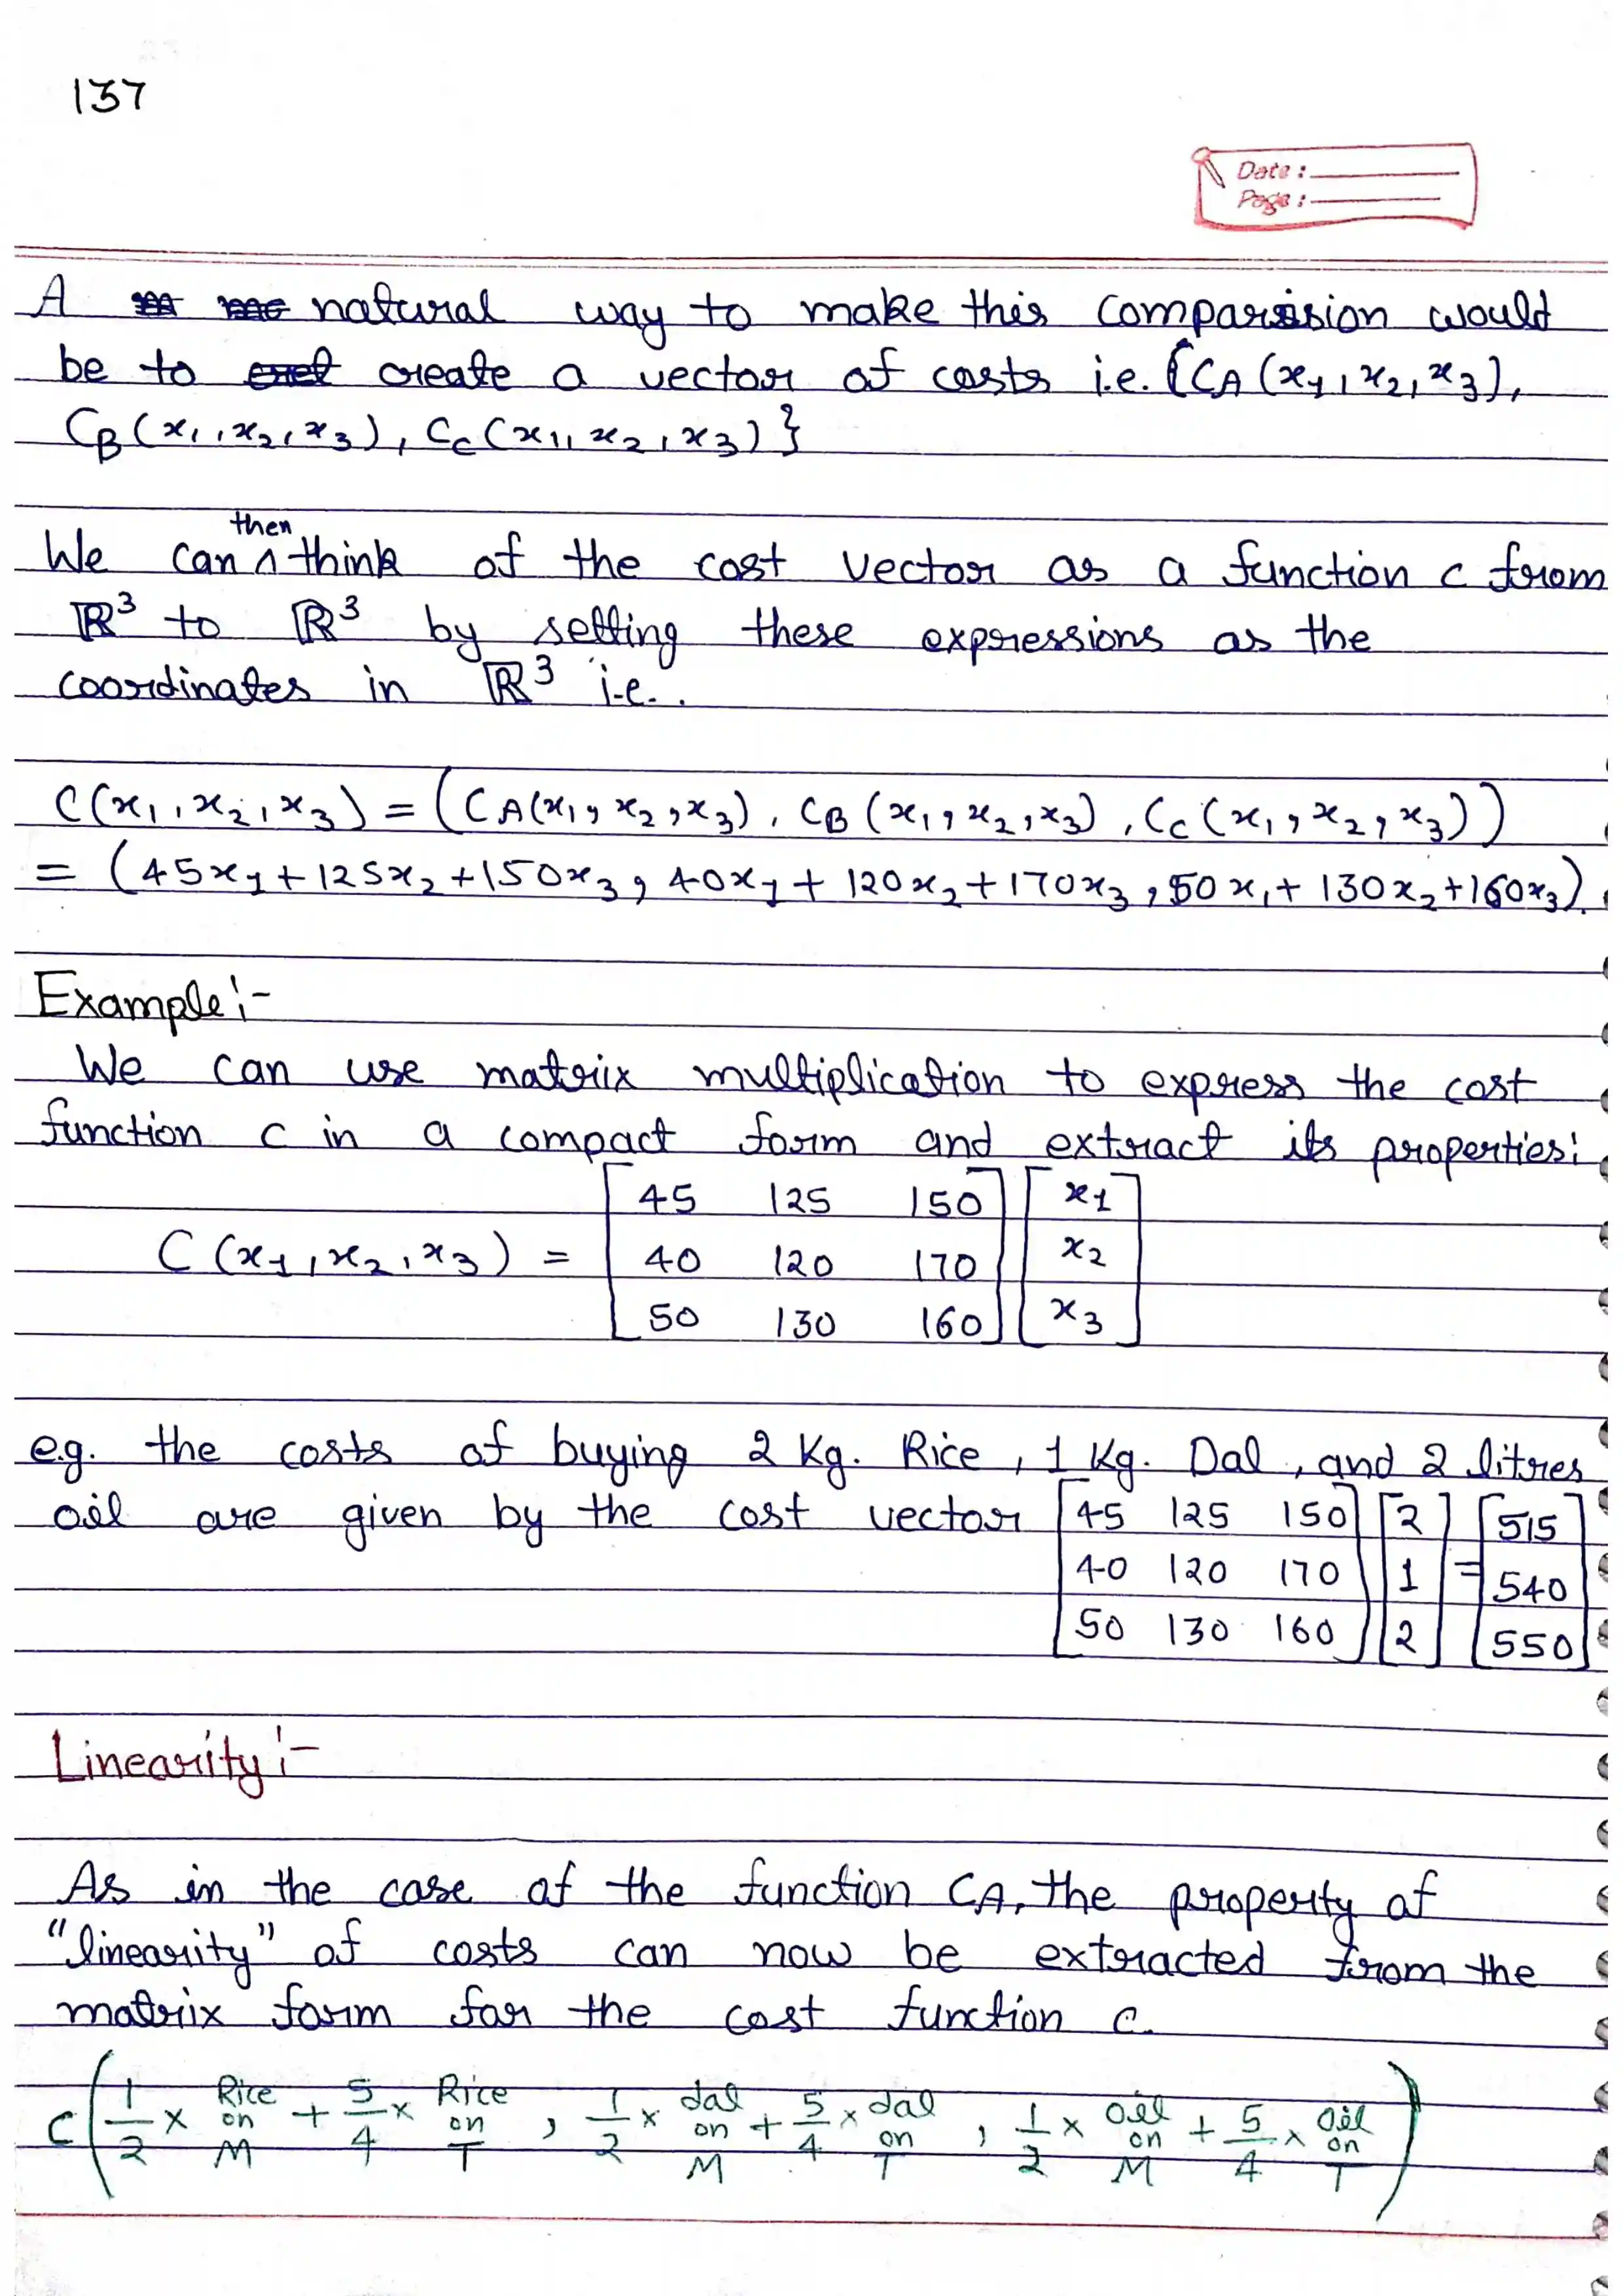 137
Date :
Page :
A natural way to make this comparision would
be to create a vector of costs i.e. {C_A (x₁, x₂, x₃),
C_B (x₁, x₂, x₃), C_C (x₁, x₂, x₃)}
We can then think of the cost vector as a function c from
ℝ³ to ℝ³ by setting these expressions as the
coordinates in ℝ³ i.e..
C(x₁, x₂, x₃) = (C_A(x₁, x₂, x₃), C_B (x₁, x₂, x₃), C_C (x₁, x₂, x₃))
= (45x₁ + 125x₂ + 150x₃, 40x₁ + 120x₂ + 170x₃, 50x₁ + 130x₂ + 160x₃).
Example :-
We can use matrix multiplication to express the cost
function c in a compact form and extract its properties:
45 125 150 x₁
C (x₁, x₂, x₃) = 40 120 170 x₂
50 130 160 x₃
e.g. the costs of buying 2 Kg. Rice, 1 Kg. Dal, and 2 litres
oil are given by the cost vector [45 125 150] [2] [515]
[40 120 170] [1] = [540]
[50 130 160] [2] [550]
Linearity :-
As in the case of the function C_A, the property of
"linearity" of costs can now be extracted from the
matrix form for the cost function c.
C(1/2 × Rice on M + 5/4 × Rice on T, 1/2 × dal on M + 5/4 × dal on T, 1/2 × Oil on M + 5/4 × Oil on T)